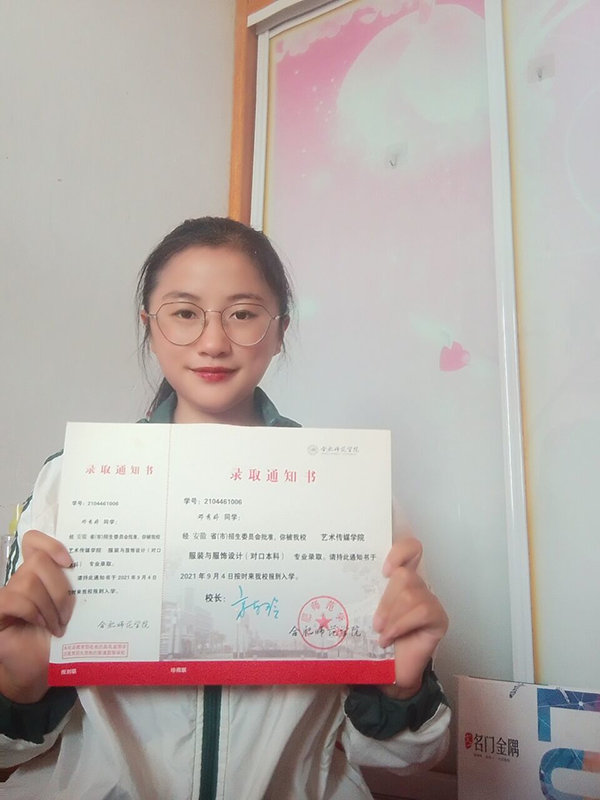 录取通知书
学号：2104461006
同学：
经 安徽 省(市)招生委员会批准，你被我校
艺术传媒学院 服装与服饰设计（对口
本科） 专业录取。
请持此通知书于 2021 年 9 月 4 日
按时来我校报到入学。
合肥师范学院
报到联
合肥师范学院
录取通知书
学号：2104461006
同学：
经 安徽 省(市)招生委员会批准，你被我校 艺术传媒学院
服装与服饰设计（对口本科） 专业录取。请持此通知书于
2021 年 9 月 4 日按时来我校报到入学。
校长：
合肥师范学院
珍藏联
名门金隅